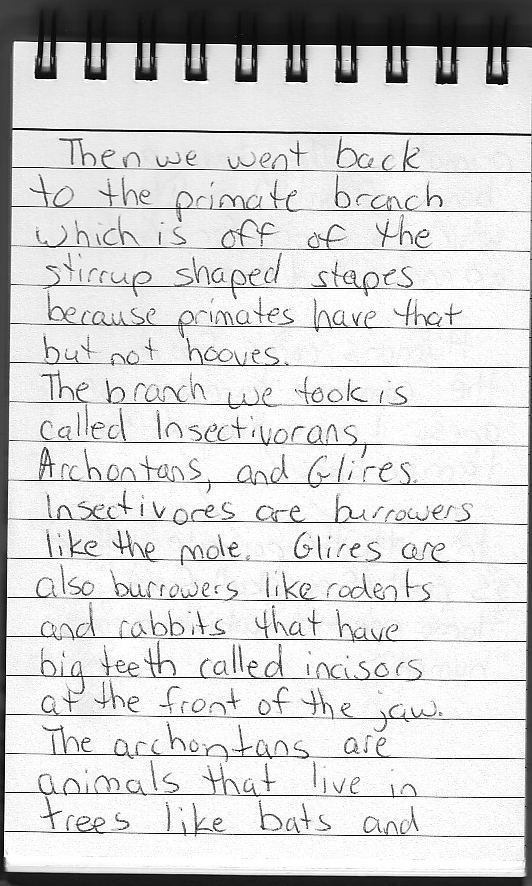 Then we went back
to the primate branch
which is off of the
stirrup shaped stapes
because primates have that
but not hooves.
The branch we took is
called Insectivorans,
Archontans, and Glires.
Insectivores are burrowers
like the mole. Glires are
also burrowers like rodents
and rabbits that have
big teeth called incisors
at the front of the jaw.
The archontans are
animals that live in
trees like bats and